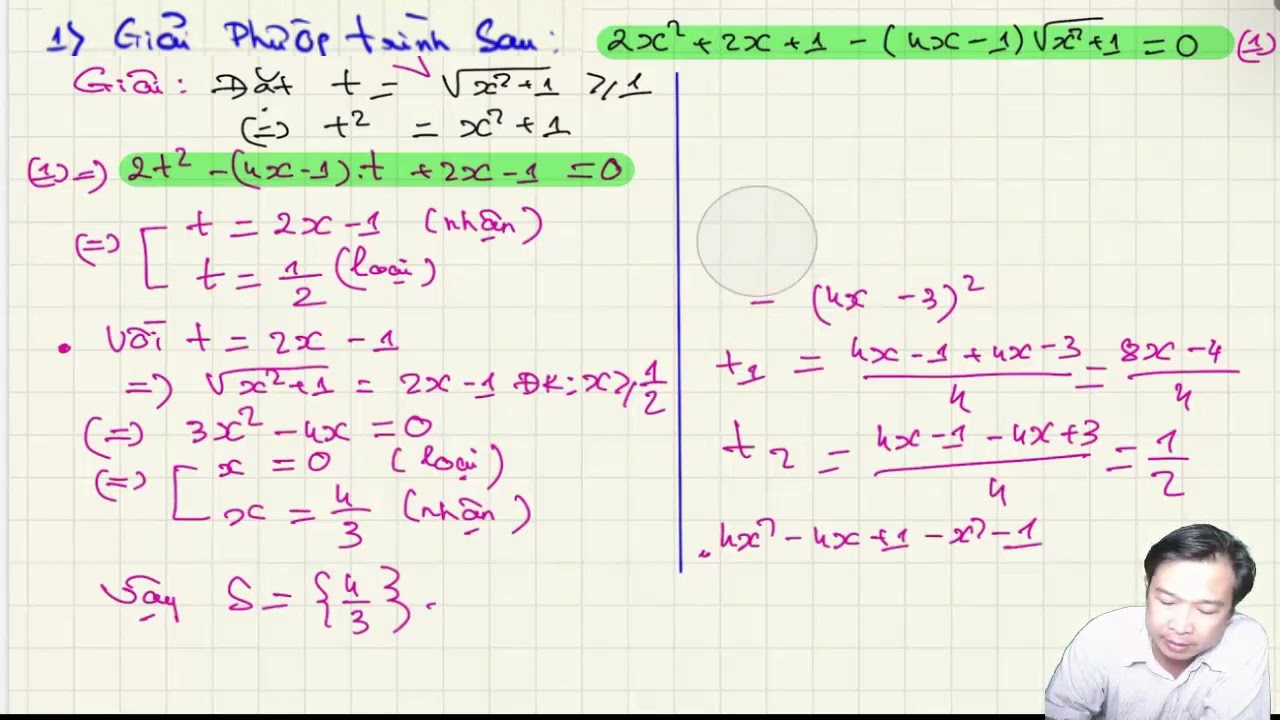 1) Giải Phườp trình Sau: 2x² + 2x + 1 - (4x - 1)√x²+1 = 0 (1)
Giải: Đặt t = √x²+1 ≥ 1
(=) t² = x² + 1
(1) =) 2t² - (4x-1).t + 2x - 1 = 0
(=) [ t = 2x - 1 (nhận)
t = 1/2 (loại)
• Với t = 2x - 1
=) √x²+1 = 2x - 1 ĐK: x ≥ 1/2
(=) 3x² - 4x = 0
(=) [ x = 0 (loại)
x = 4/3 (nhận)
Vậy S = {4/3}.
= (4x - 3)²
t₁ = (4x - 1 + 4x - 3)/4 = (8x - 4)/4
t₂ = (4x - 1 - 4x + 3)/4 = 1/2
. 4x² - 4x + 1 - x² - 1